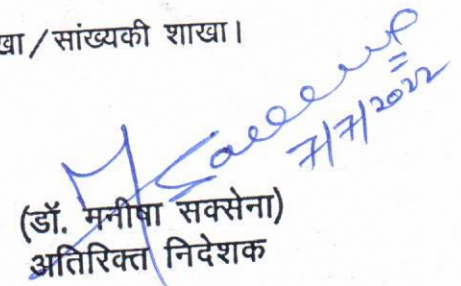 खा/सांख्यकी शाखा।
7/7/2022
(डॉ. मनीषा सक्सेना)
अतिरिक्त निदेशक